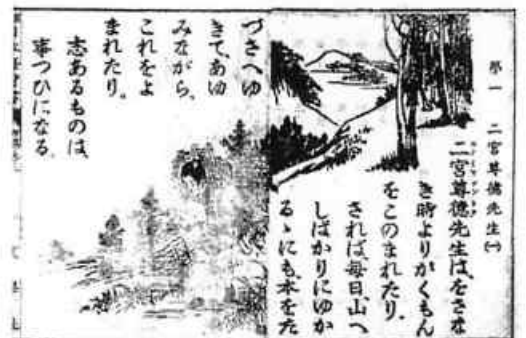 第一 二宮尊徳先生(一)
二宮尊徳先生は、をさな
き時よりがくもん
をこのまれたり。
されば、毎日、山へ
しばかりにゆか
るゝにも、本をた
づさへゆ
きて、あゆ
みながら、
これをよ
まれたり。
志あるものは、
事つひになる。